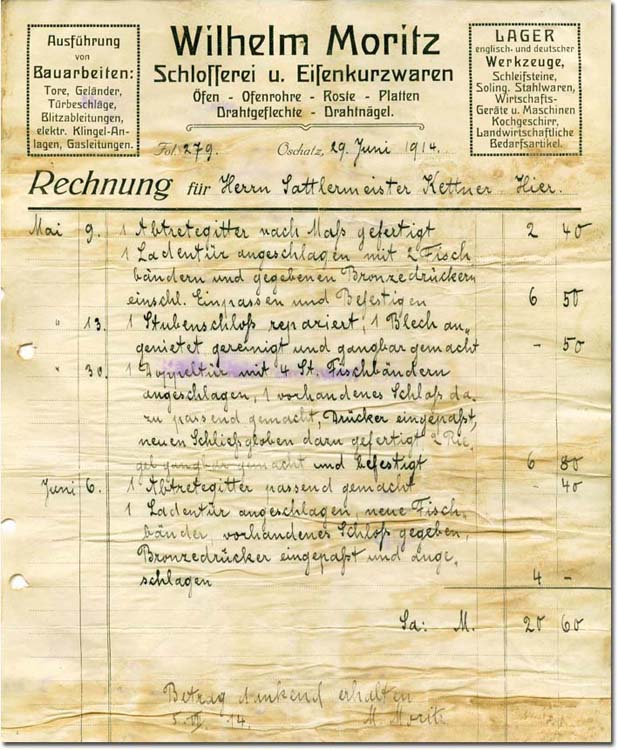 Ausführung
von
Bauarbeiten:
Tore, Geländer,
Türbeschläge,
Blitzableitungen,
elektr. Klingel-An-
lagen, Gasleitungen.
Wilhelm Moritz
Schlosserei u. Eisenkurzwaren
Öfen - Ofenrohre - Roste - Platten
Drahtgeflechte - Drahtnägel.
LAGER
englisch- und deutscher
Werkzeuge,
Schleifsteine,
Soling. Stahlwaren,
Wirtschafts-
Geräte u. Maschinen
Kochgeschirr,
Landwirtschaftliche
Bedarfsartikel.
Fol. 279. Oschatz, 29. Juni 1914.
Rechnung für Herrn Sattlermeister Kettner Hier.
Mai 9. 1 Abtretegitter nach Maß gefertigt 2 40
1 Ladentür angeschlagen mit 2 Fisch
bändern und gegebenen Bronzedrückern
einschl. Einpassen und Befestigen 6 50
" 13. 1 Stubenschloß repariert, 1 Blech an-
genietet gereinigt und gangbar gemacht - 50
" 30. 1 Doppeltür mit 4 St. Fischbändern
angeschlagen, 1 vorhandenes Schloß da-
zu passend gemacht, Drücker eingepaßt,
neuen Schließgloben dazu gefertigt 2 Rie-
gel gangbar gemacht und befestigt 6 80
Juni 6. 1 Abtretegitter passend gemacht - 40
1 Ladentür angeschlagen, neue Fisch-
bänder, vorhandenes Schloß gegeben,
Bronzedrücker eingepaßt und ange-
schlagen 4 -
Sa: M. 20 60
Betrag dankend erhalten
5. 14. M. Moritz